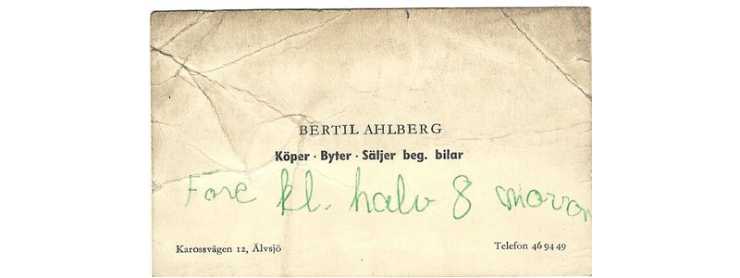 BERTIL AHLBERG
Köper · Byter · Säljer beg. bilar
Fore kl. halv 8 morron
Karossvägen 12, Älvsjö
Telefon 46 94 49